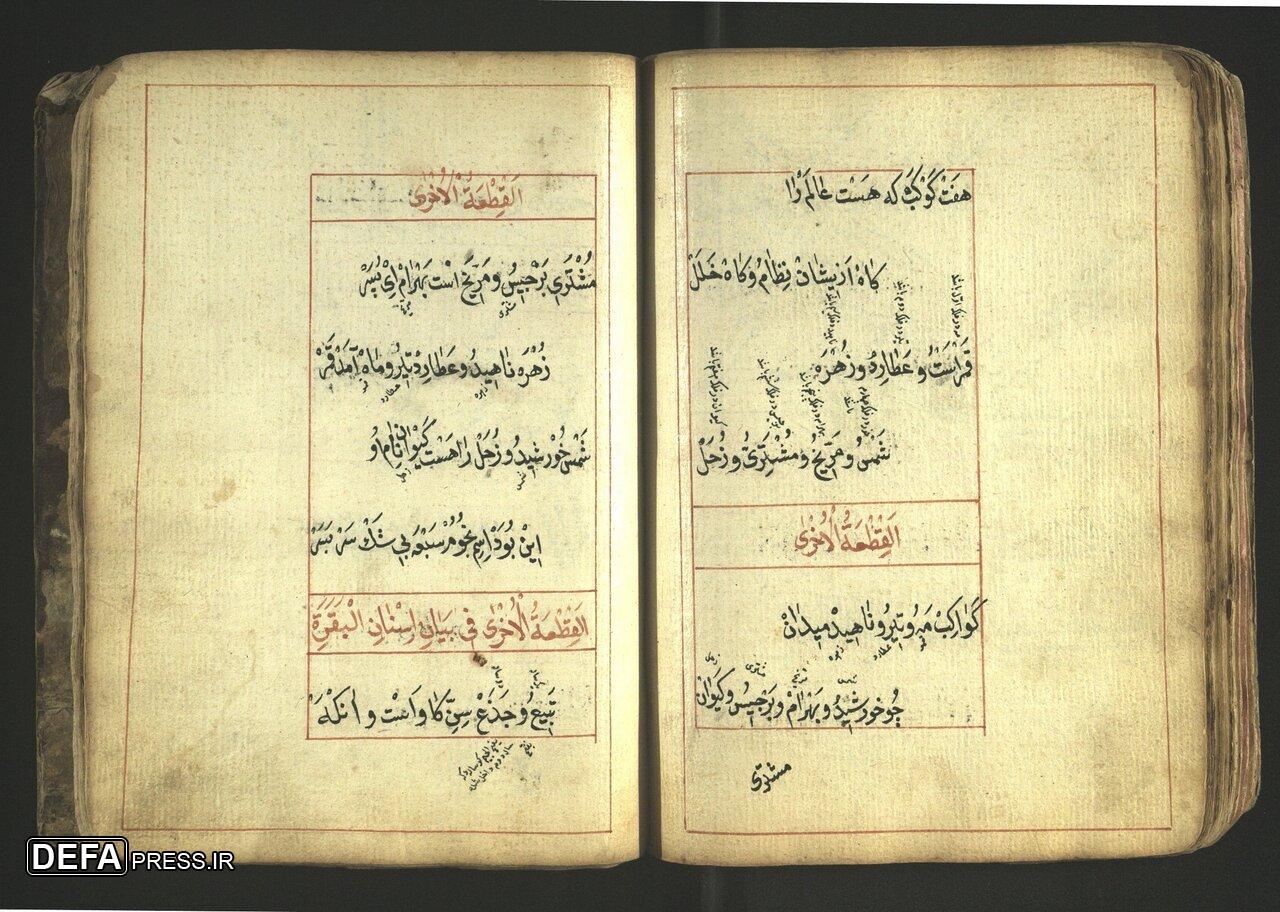 هفت کوکب که هست عالم را
کاه ازیشان نظام و کاه خلل
قمر است و عطارد و زهره
شمس و مریخ و مشتری و زحل
القطعة الاخری
کواکب مه و تیر و ناهید میدان
قمر عطارد زهره
شمس مریخ مشتری زحل
چو خورشید و بهرام و برجیس و کیوان
مشتری
القطعة الاخری
مشتری برجیس و مریخ است بهرام ای پسر
مشتری مریخ
زهره ناهید و عطارد تیر و ماه آمد قمر
زهره عطارد قمر
شمس خورشید و زحل را هست کیوان نام او
شمس زحل
این بود اسم نجوم سبعه بی شک سر بسر
القطعة الاخری فی بیان اسنان البقرة
تبیع و جذع سن کاو است و انکه
DEFAPRESS.IR